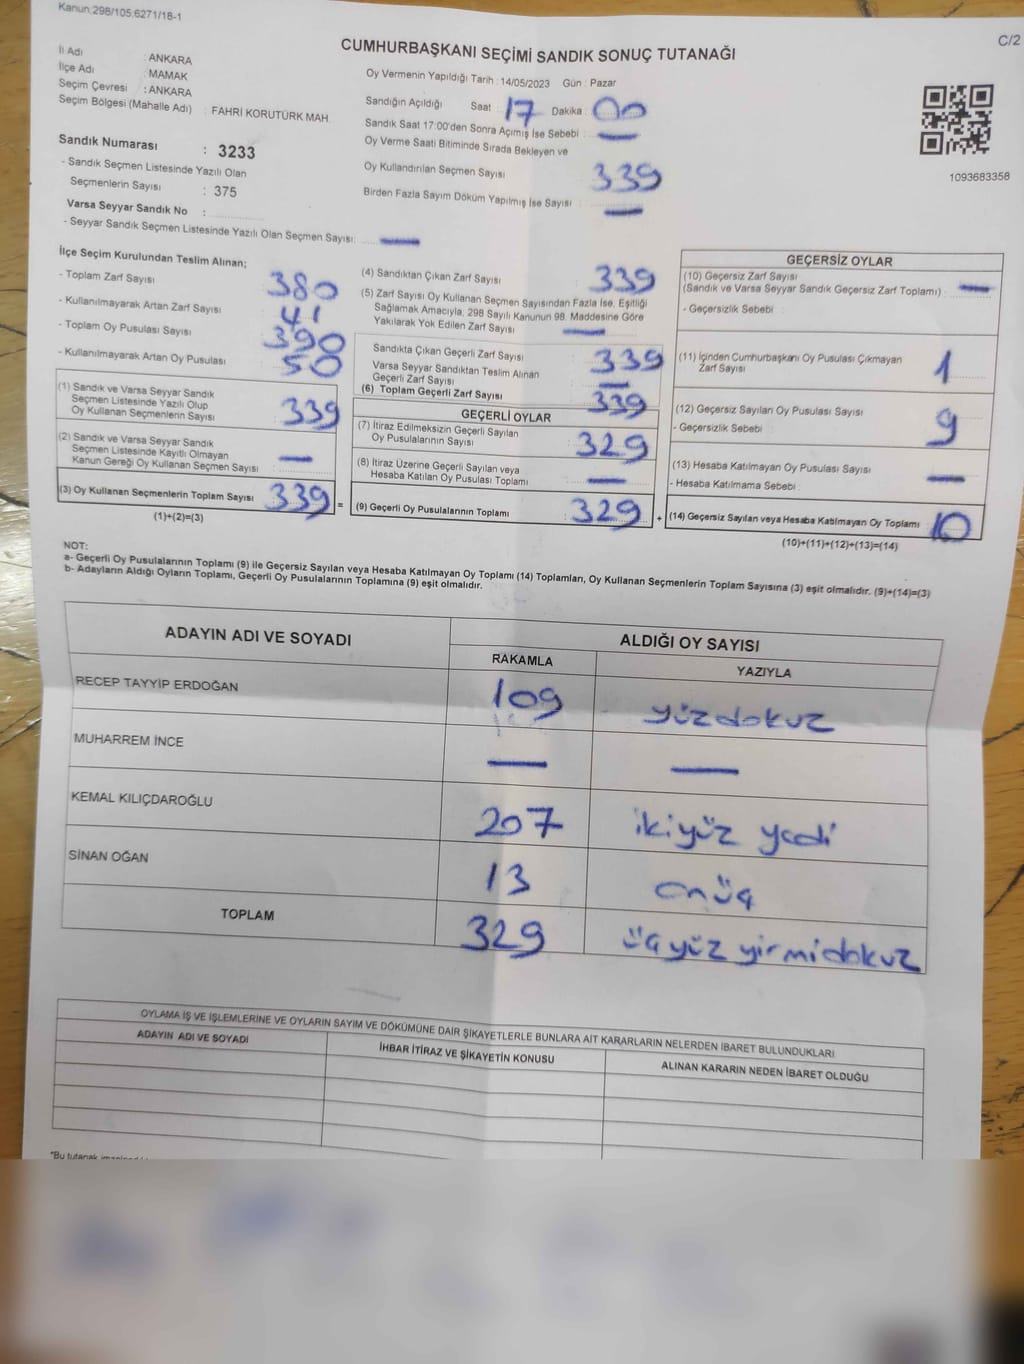 Kanun,298/105,6271/18-1
C/2
CUMHURBAŞKANI SEÇİMİ SANDIK SONUÇ TUTANAĞI
İl Adı : ANKARA
İlçe Adı : MAMAK
Seçim Çevresi : ANKARA
Seçim Bölgesi (Mahalle Adı) : FAHRİ KORUTÜRK MAH.
Oy Vermenin Yapıldığı Tarih : 14/05/2023 Gün : Pazar
Sandığın Açıldığı Saat 17 Dakika : 00
Sandık Saat 17:00'den Sonra Açımış İse Sebebi : —
Oy Verme Saati Bitiminde Sırada Bekleyen ve
Oy Kullandırılan Seçmen Sayısı 339
Birden Fazla Sayım Döküm Yapılmış İse Sayısı : —
1093683358
Sandık Numarası : 3233
- Sandık Seçmen Listesinde Yazılı Olan
Seçmenlerin Sayısı : 375
Varsa Seyyar Sandık No :
- Seyyar Sandık Seçmen Listesinde Yazılı Olan Seçmen Sayısı: —
İlçe Seçim Kurulundan Teslim Alınan;
- Toplam Zarf Sayısı 380
- Kullanılmayarak Artan Zarf Sayısı 41
- Toplam Oy Pusulası Sayısı 390
- Kullanılmayarak Artan Oy Pusulası 50
(1) Sandık ve Varsa Seyyar Sandık
Seçmen Listesinde Yazılı Olup
Oy Kullanan Seçmenlerin Sayısı 339
(2) Sandık ve Varsa Seyyar Sandık
Seçmen Listesinde Kayıtlı Olmayan
Kanun Gereği Oy Kullanan Seçmen Sayısı —
(3) Oy Kullanan Seçmenlerin Toplam Sayısı 339 =
(1)+(2)=(3)
(4) Sandıktan Çıkan Zarf Sayısı 339
(5) Zarf Sayısı Oy Kullanan Seçmen Sayısından Fazla İse, Eşitliği
Sağlamak Amacıyla, 298 Sayılı Kanunun 98. Maddesine Göre
Yakılarak Yok Edilen Zarf Sayısı —
Sandıkta Çıkan Geçerli Zarf Sayısı 339
Varsa Seyyar Sandıktan Teslim Alınan
Geçerli Zarf Sayısı —
(6) Toplam Geçerli Zarf Sayısı 339
GEÇERLİ OYLAR
(7) İtiraz Edilmeksizin Geçerli Sayılan
Oy Pusulalarının Sayısı 329
(8) İtiraz Üzerine Geçerli Sayılan veya
Hesaba Katılan Oy Pusulası Toplamı —
(9) Geçerli Oy Pusulalarının Toplamı 329 +
GEÇERSİZ OYLAR
(10) Geçersiz Zarf Sayısı
(Sandık ve Varsa Seyyar Sandık Geçersiz Zarf Toplamı) : —
- Geçersizlik Sebebi :
(11) İçinden Cumhurbaşkanı Oy Pusulası Çıkmayan
Zarf Sayısı 1
(12) Geçersiz Sayılan Oy Pusulası Sayısı 9
- Geçersizlik Sebebi :
(13) Hesaba Katılmayan Oy Pusulası Sayısı —
- Hesaba Katılmama Sebebi :
(14) Geçersiz Sayılan veya Hesaba Katılmayan Oy Toplamı 10
(10)+(11)+(12)+(13)=(14)
NOT:
a- Geçerli Oy Pusulalarının Toplamı (9) ile Geçersiz Sayılan veya Hesaba Katılmayan Oy Toplamı (14) Toplamları, Oy Kullanan Seçmenlerin Toplam Sayısına (3) eşit olmalıdır. (9)+(14)=(3)
b- Adayların Aldığı Oyların Toplamı, Geçerli Oy Pusulalarının Toplamına (9) eşit olmalıdır.
ADAYIN ADI VE SOYADI ALDIĞI OY SAYISI
RAKAMLA YAZIYLA
RECEP TAYYİP ERDOĞAN 109 yüzdokuz
MUHARREM İNCE — —
KEMAL KILIÇDAROĞLU 207 ikiyüz yedi
SİNAN OĞAN 13 onüç
TOPLAM 329 üçyüz yirmidokuz
OYLAMA İŞ VE İŞLEMLERİNE VE OYLARIN SAYIM VE DÖKÜMÜNE DAİR ŞİKAYETLERLE BUNLARA AİT KARARLARIN NELERDEN İBARET BULUNDUKLARI
ADAYIN ADI VE SOYADI İHBAR İTİRAZ VE ŞİKAYETİN KONUSU ALINAN KARARIN NEDEN İBARET OLDUĞU
*Bu tutanak